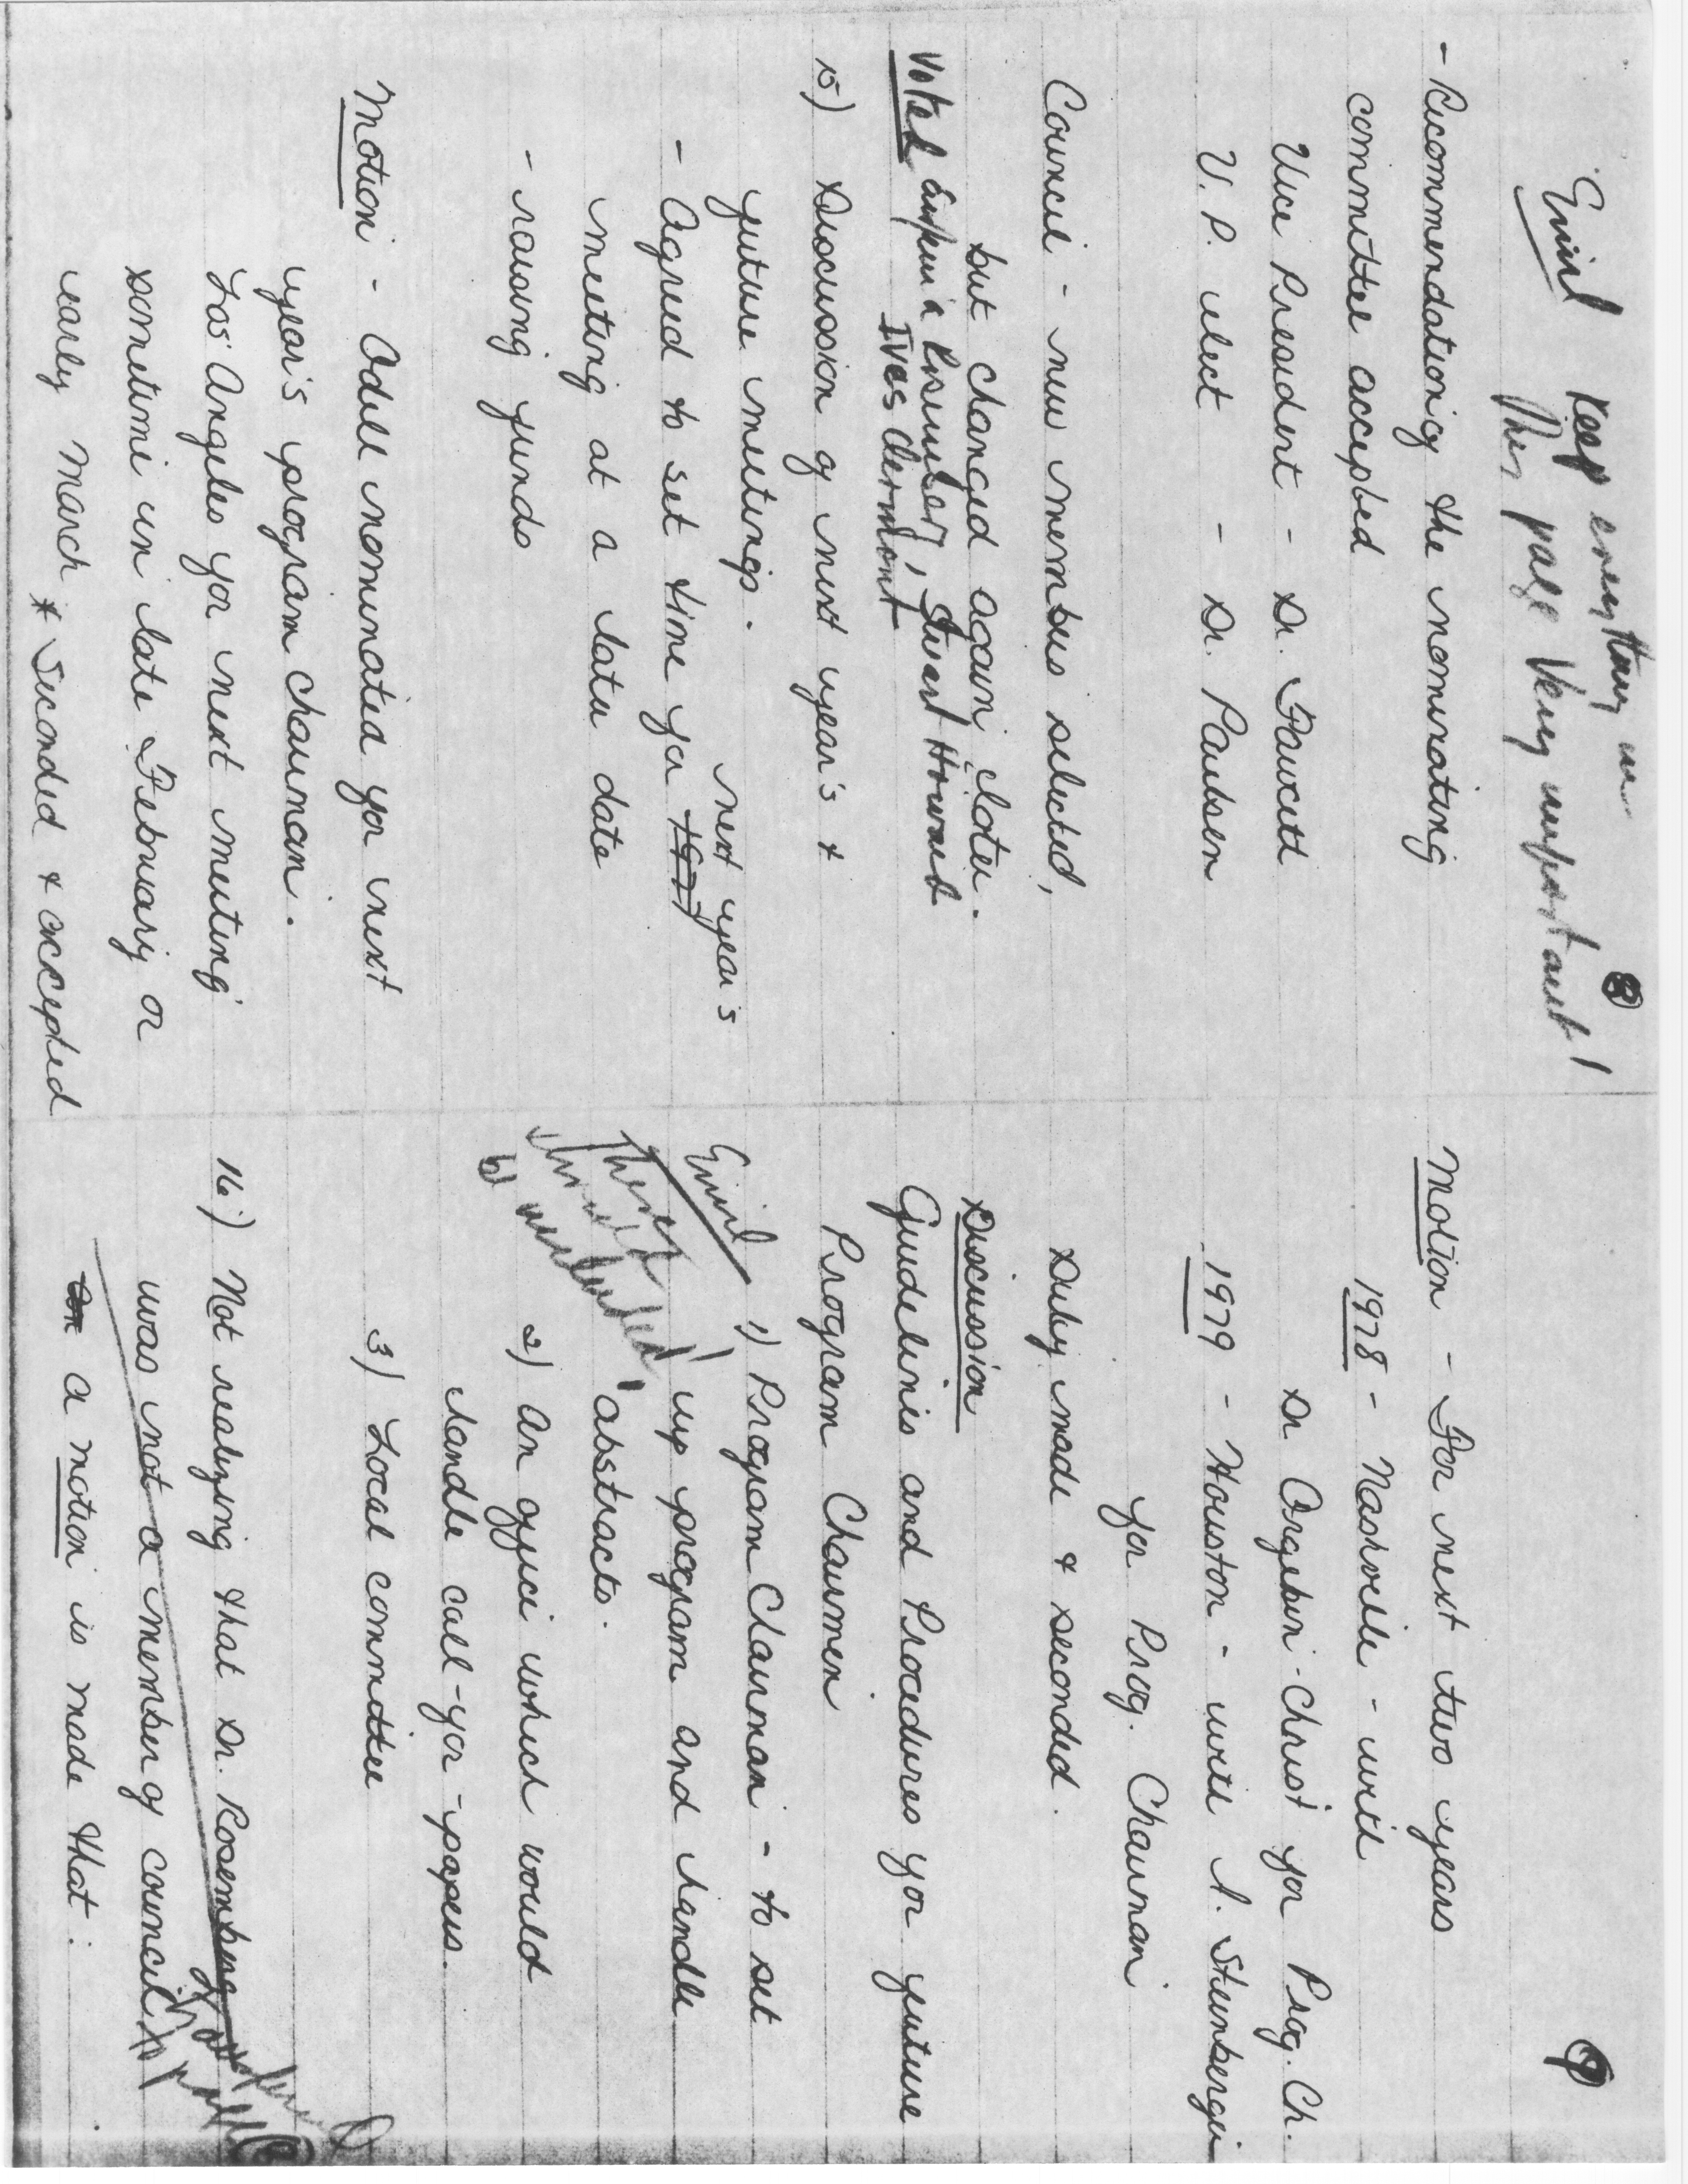 8
Emil Keep everything in
this page Very important!
- Recommendation of the nominating
committee accepted
Vice President - Dr. Fawcett
V. P. elect - Dr. Paulsen
Council - new members selected,
but changed again later.
Voted Stuart Howard
Ives Clermont
15) Discussion of next year's +
future meetings.
next year's
- Agreed to set time for 1977
meeting at a later date
- raising funds
Motion - Odell nominated for next
year's program chairman.
Los Angeles for next meeting
sometime in late February or
early March * Seconded + accepted
9
Motion - For next two years
1978 - Nashville - with
Dr Orgebin-Christ for Prog. Ch.
1979 - Houston - with A. Steinberger
for Prog. Chairman
Duly made + seconded.
Discussion
Guidelines and Procedures for future
Program Chairmen
Emil
These
should
be included
1) Program Chairman - to set
up program and handle
abstracts.
2) An office which would
handle call-for-papers.
3) Local committee
16) Not realizing that Dr. Rosemberg
was not a member of council
a motion is made that: